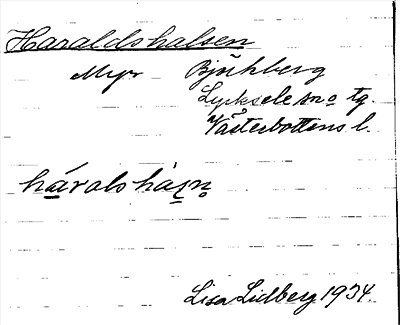 Haraldshalsen
Myr Björkberg
Lycksele sn o tg.
Västerbottens l.
hárals hàsn̥
Lisa Lidberg 1934.